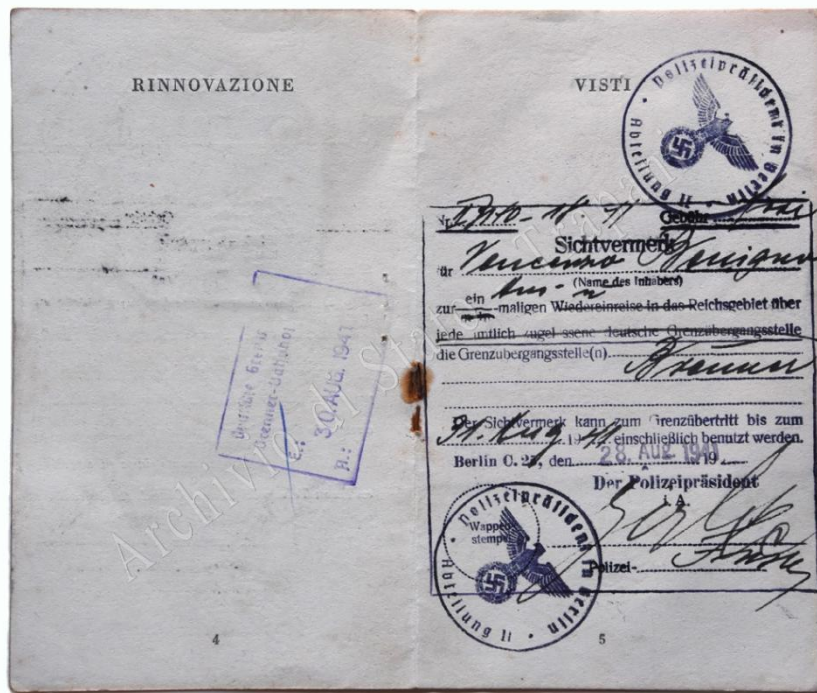 RINNOVAZIONE
Deutsche Grenz
Brenner-Bahnhof
E.:
30. AUG. 1941
A.:
4
VISTI
Polizeipräsident in Berlin
Abteilung II
Nr.
Gebühr
Sichtvermerk
für Vencenzo
(Name des Inhabers)
ein
zur -maligen Wiedereinreise in das Reichsgebiet über
jede amtlich zugelassene deutsche Grenzübergangsstelle
die Grenzübergangsstelle(n) Brenner
Der Sichtvermerk kann zum Grenzübertritt bis zum
31. Aug 1941 einschließlich benutzt werden.
Berlin C. 25, den 28. Aug. 1941 19
Der Polizeipräsident
i. A.
Wappen
stempel
Polizei-
Polizeipräsident in Berlin
Abteilung II
5
Archivio di Stato Trapani